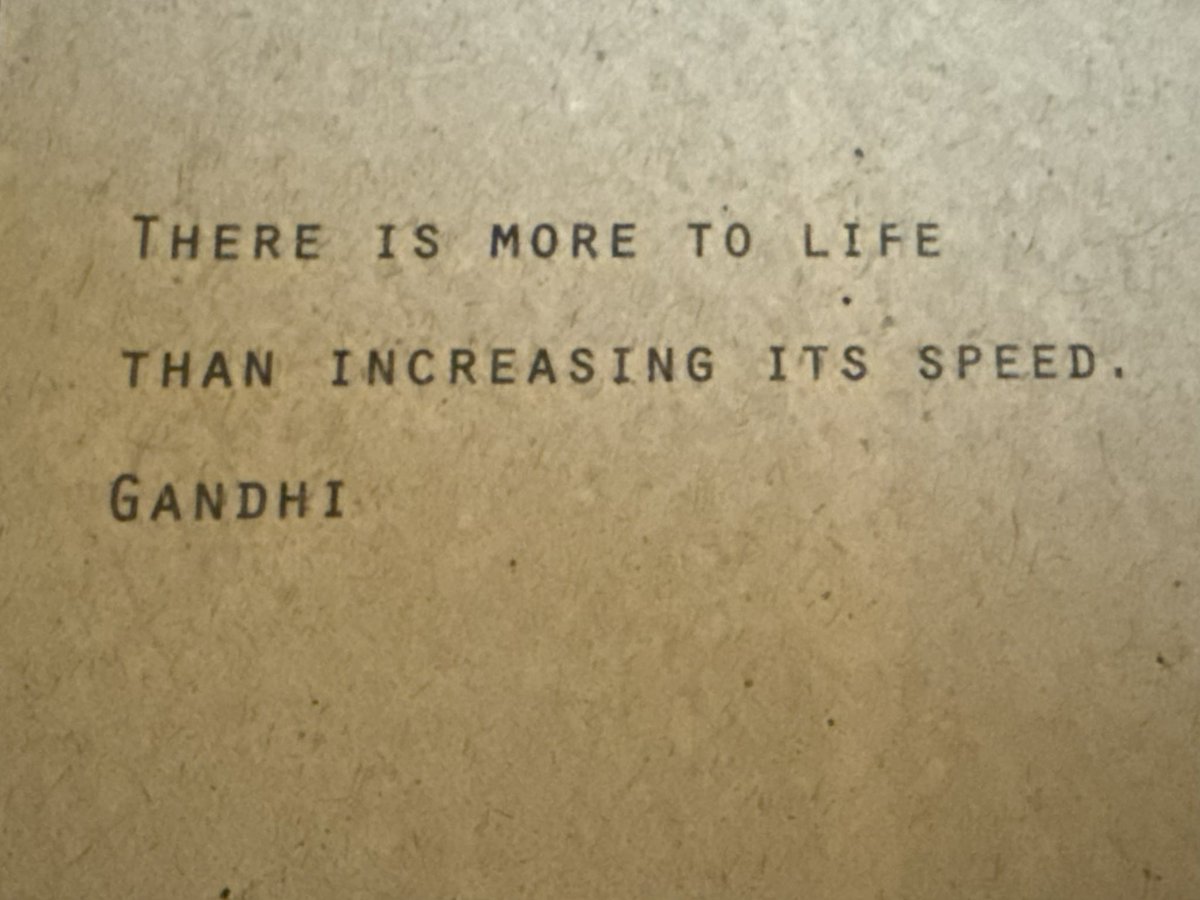 There is more to life
than increasing its speed.
Gandhi